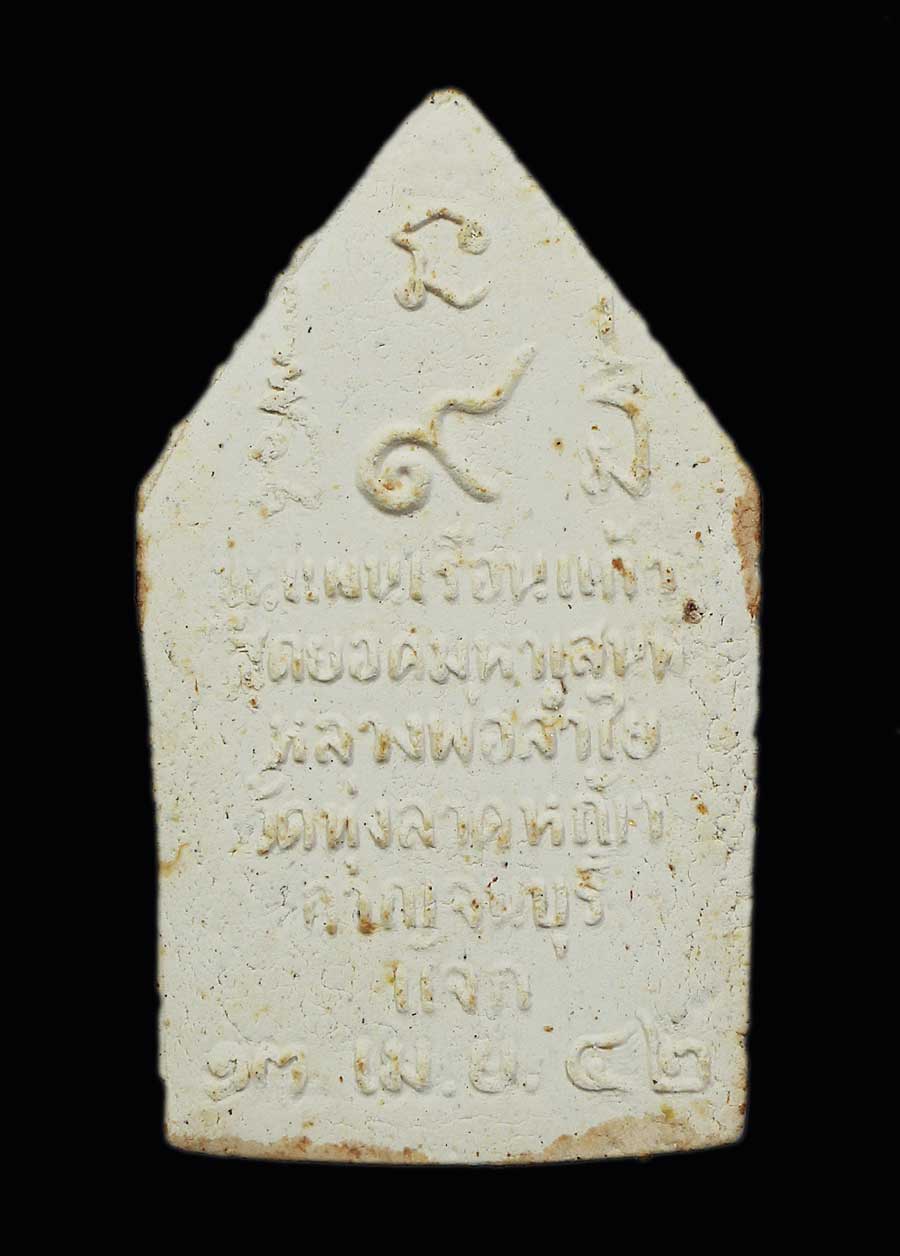 ๙
น.แผนเรือนแก้ว
สุดยอดมหาเสน่ห์
หลวงพ่อลำไย
วัดทุ่งลาดหญ้า
กาญจนบุรี
แจก
๑๓ เม.ย. ๔๒